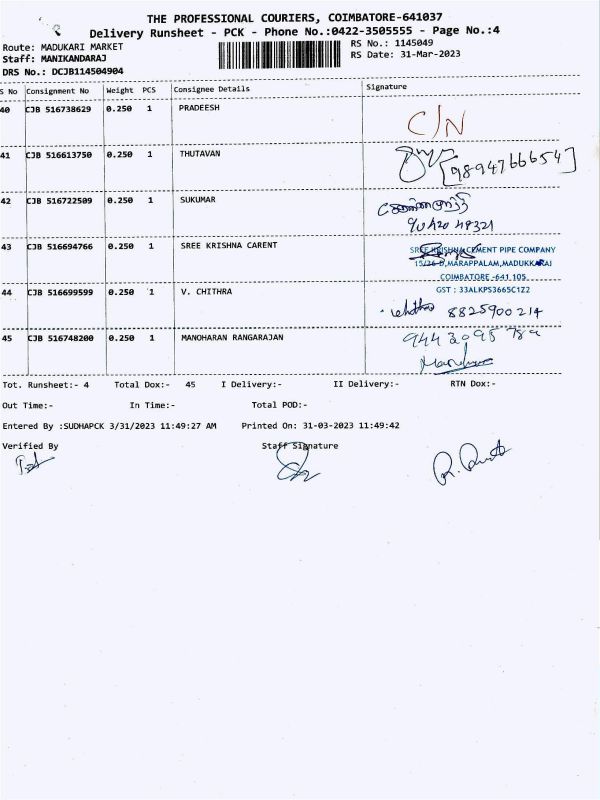 THE PROFESSIONAL COURIERS, COIMBATORE-641037
Delivery Runsheet - PCK - Phone No.:0422-3505555 - Page No.:4
Route: MADUKARI MARKET
RS No.: 1145049
Staff: MANIKANDARAJ
RS Date: 31-Mar-2023
DRS No.: DCJB114504904
S No Consignment No Weight PCS Consignee Details Signature
40 CJB 516738629 0.250 1 PRADEESH C/N
41 CJB 516613750 0.250 1 THUTAVAN [9894766654]
42 CJB 516722509 0.250 1 SUKUMAR
43 CJB 516694766 0.250 1 SREE KRISHNA CARENT SREE KRISHNA CEMENT PIPE COMPANY
15/26-D, MARAPPALAM, MADUKKARAI
COIMBATORE -641 105
GST : 33ALKPS3665C1Z2
44 CJB 516699599 0.250 1 V. CHITHRA 8825900214
45 CJB 516748200 0.250 1 MANOHARAN RANGARAJAN
Tot. Runsheet:- 4 Total Dox:- 45 I Delivery:- II Delivery:- RTN Dox:-
Out Time:- In Time:- Total POD:-
Entered By :SUDHAPCK 3/31/2023 11:49:27 AM Printed On: 31-03-2023 11:49:42
Verified By Staff Signature